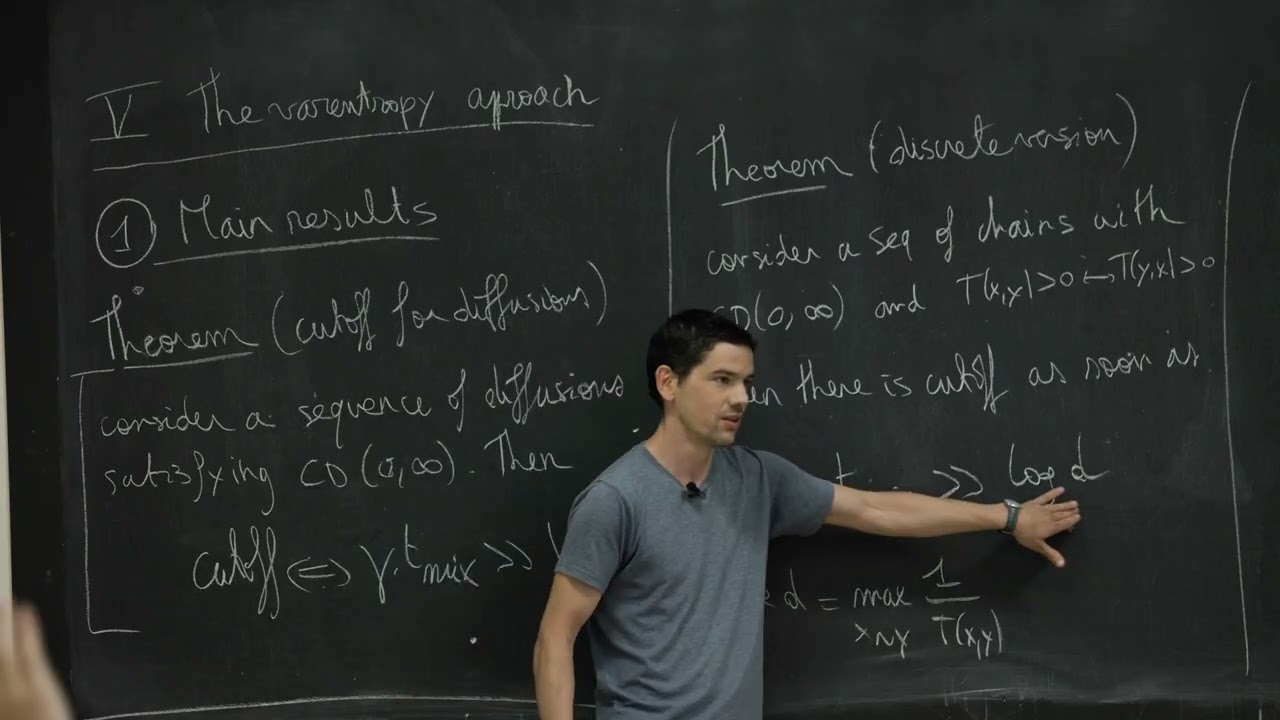 V The varentropy aproach
① Main results
Theorem (cutoff for diffusions)
consider a sequence of diffusions
satisfying CD(0,∞). Then
cutoff ⇔ γ.t_mix >>
Theorem (discrete version)
consider a seq of chains with
CD(0,∞) and T(x,y)>0 ↔ T(y,x)>0
there is cutoff as soon as
t >> log d
d = max 1/T(x,y)
x~y